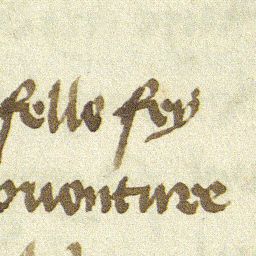 fello fey
ouonture